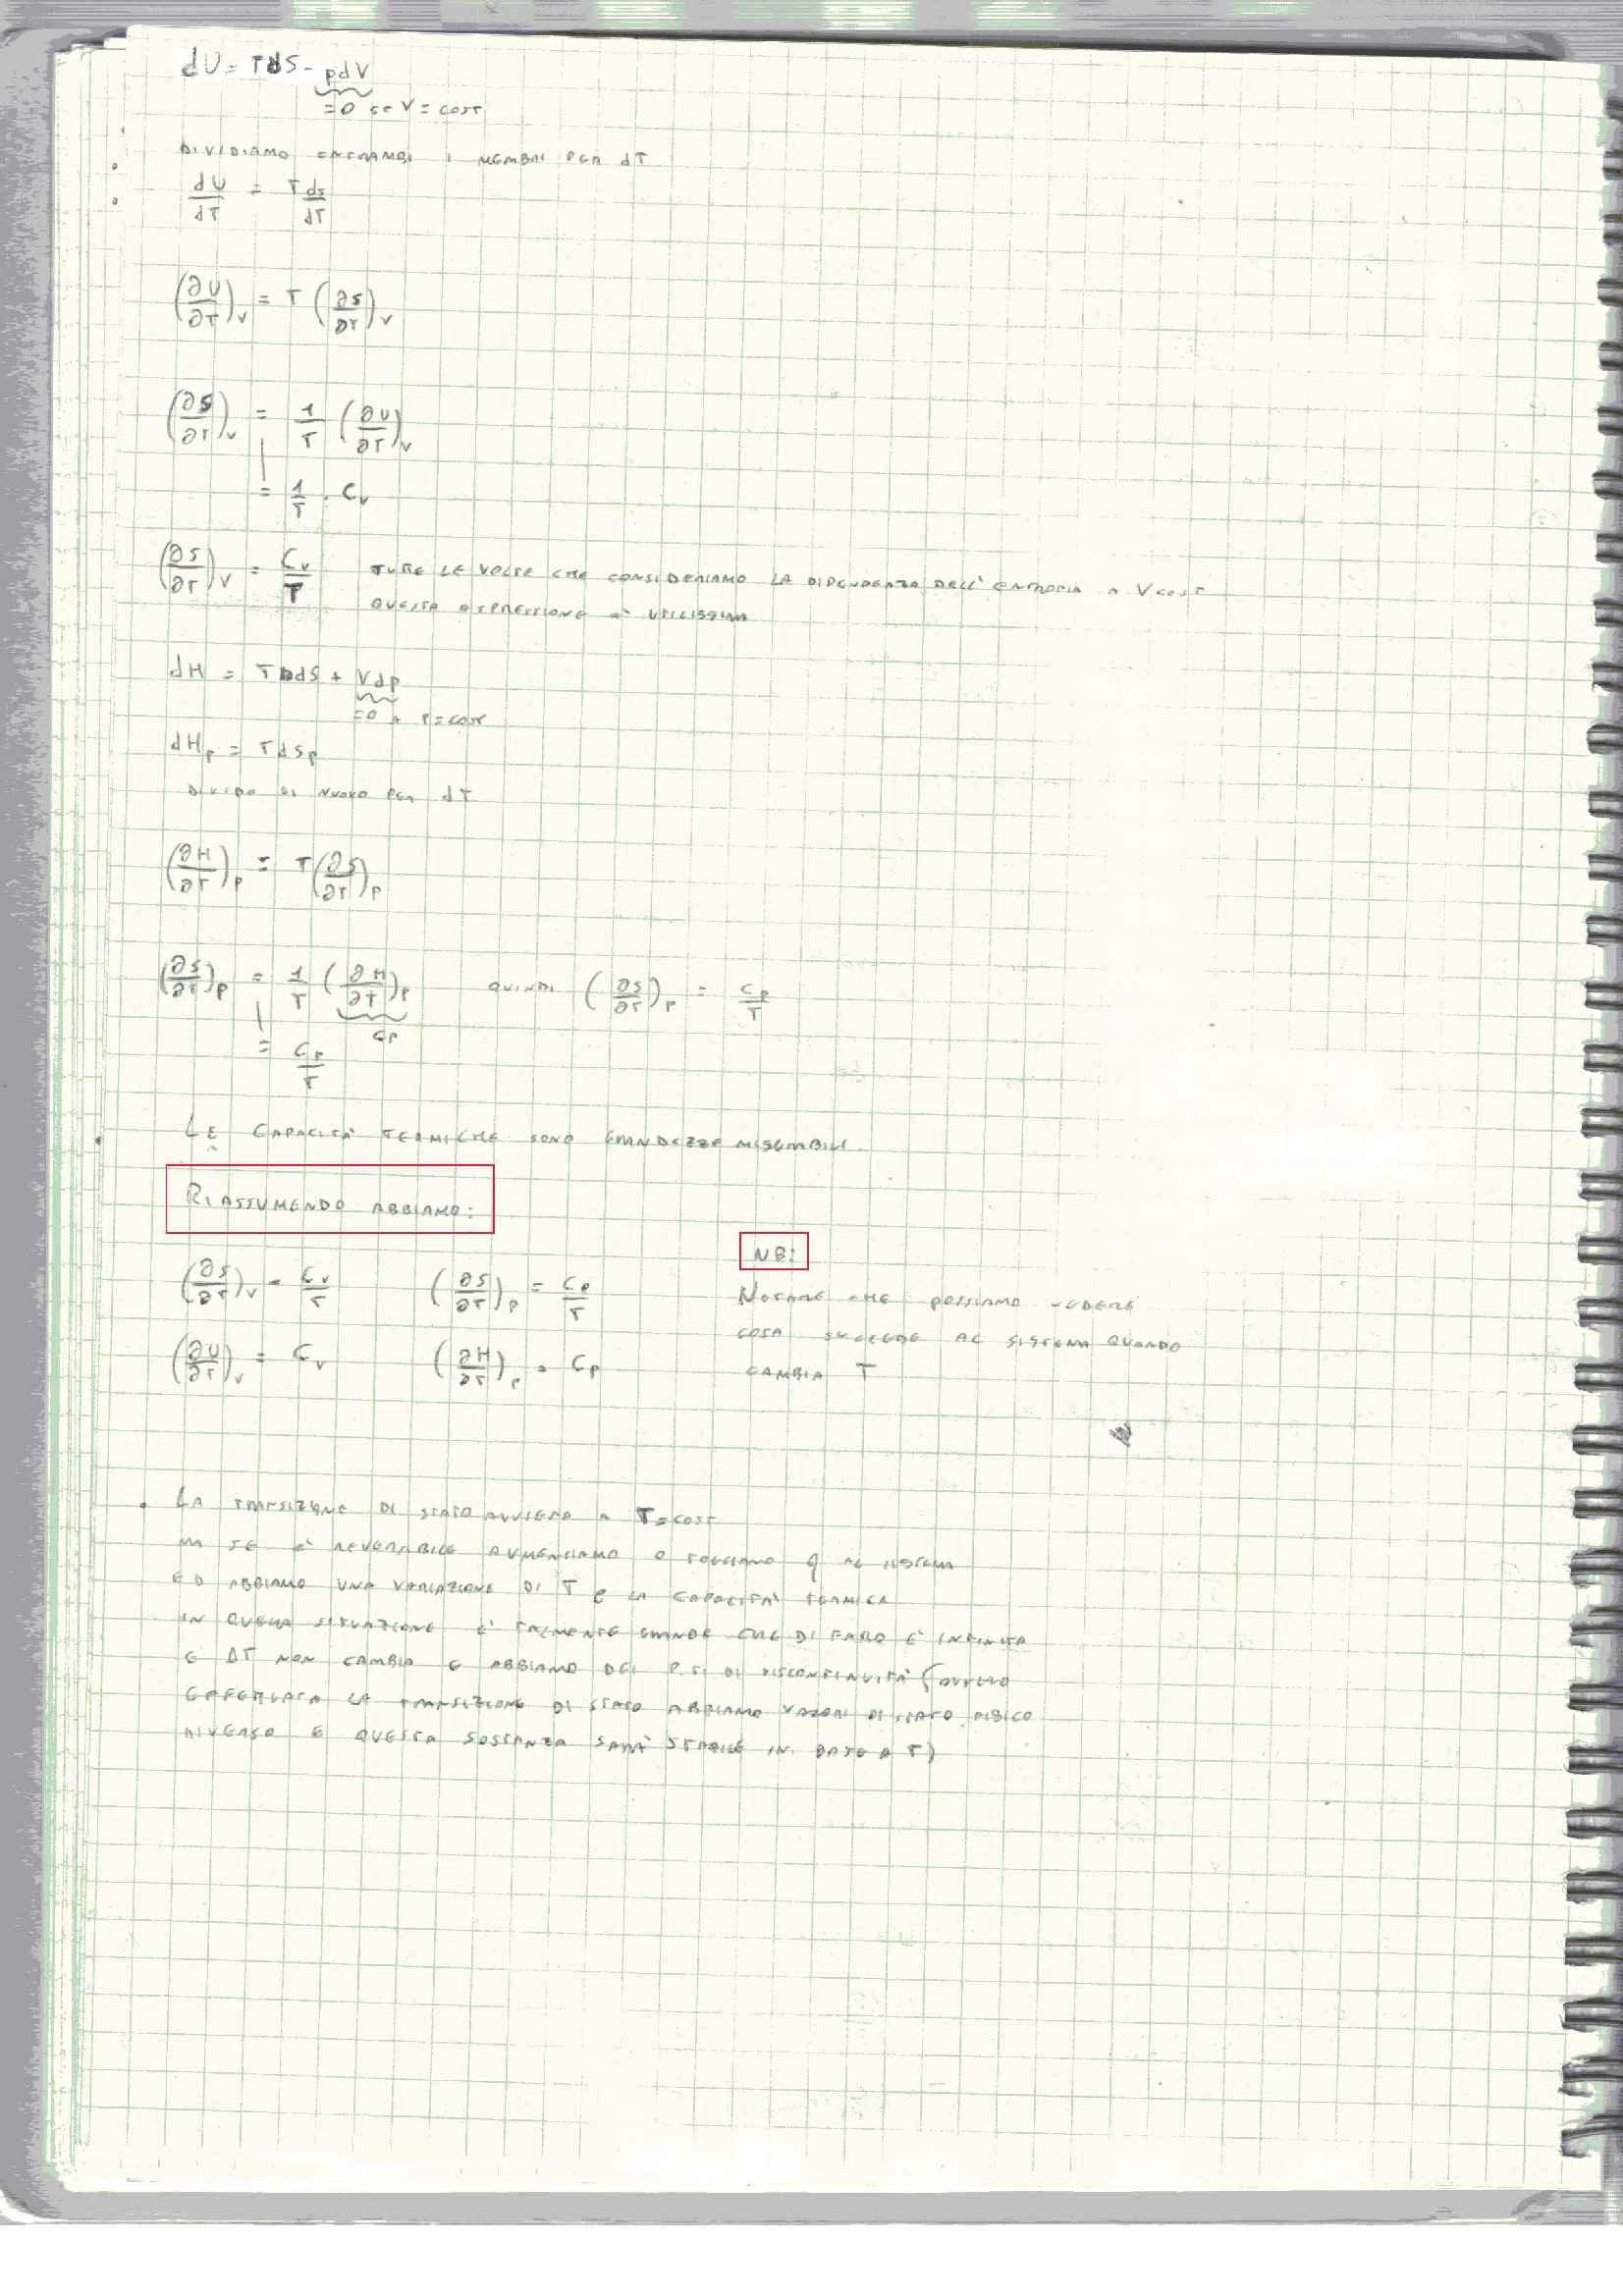 dU = TdS - pdV
=0 se V = cost
DIVIDIAMO ENTRAMBI I MEMBRI PER dT
dU/dT = T dS/dT
(∂U/∂T)V = T (∂S/∂T)V
(∂S/∂T)V = 1/T (∂U/∂T)V
= 1/T · CV
(∂S/∂T)V = CV/T TUTTE LE VOLTE CHE CONSIDERIAMO LA DIPENDENZA DELL'ENTROPIA A V COST
QUESTA ESPRESSIONE È UTILISSIMA
dH = TdS + Vdp
=0 a P=COST
dHP = TdSP
DIVIDO DI NUOVO PER dT
(∂H/∂T)P = T(∂S/∂T)P
(∂S/∂T)P = 1/T (∂H/∂T)P QUINDI (∂S/∂T)P = CP/T
CP
= CP/T
LE CAPACITÀ TERMICHE SONO GRANDEZZE MISURABILI
RIASSUMENDO ABBIAMO:
(∂S/∂T)V = CV/T (∂S/∂T)P = CP/T
(∂U/∂T)V = CV (∂H/∂T)P = CP
NB:
NOTARE CHE POSSIAMO VEDERE
COSA SUCCEDE AL SISTEMA QUANDO
CAMBIA T
. LA TRANSIZIONE DI STATO AVVIENE A T=COST
MA SE È REVERSIBILE AUMENTIAMO O TOGLIAMO q AL SISTEMA
ED ABBIAMO UNA VARIAZIONE DI T E LA CAPACITÀ TERMICA
IN QUELLA SITUAZIONE È TALMENTE GRANDE CHE DI FATTO È INFINITA
E ΔT NON CAMBIA E ABBIAMO DEI P.TI DI DISCONTINUITÀ (OVVERO
EFFETTUATA LA TRANSIZIONE DI STATO ABBIAMO VALORI DI STATO FISICO
DIVERSO E QUESTA SOSTANZA SARÀ STABILE IN BASE A T)